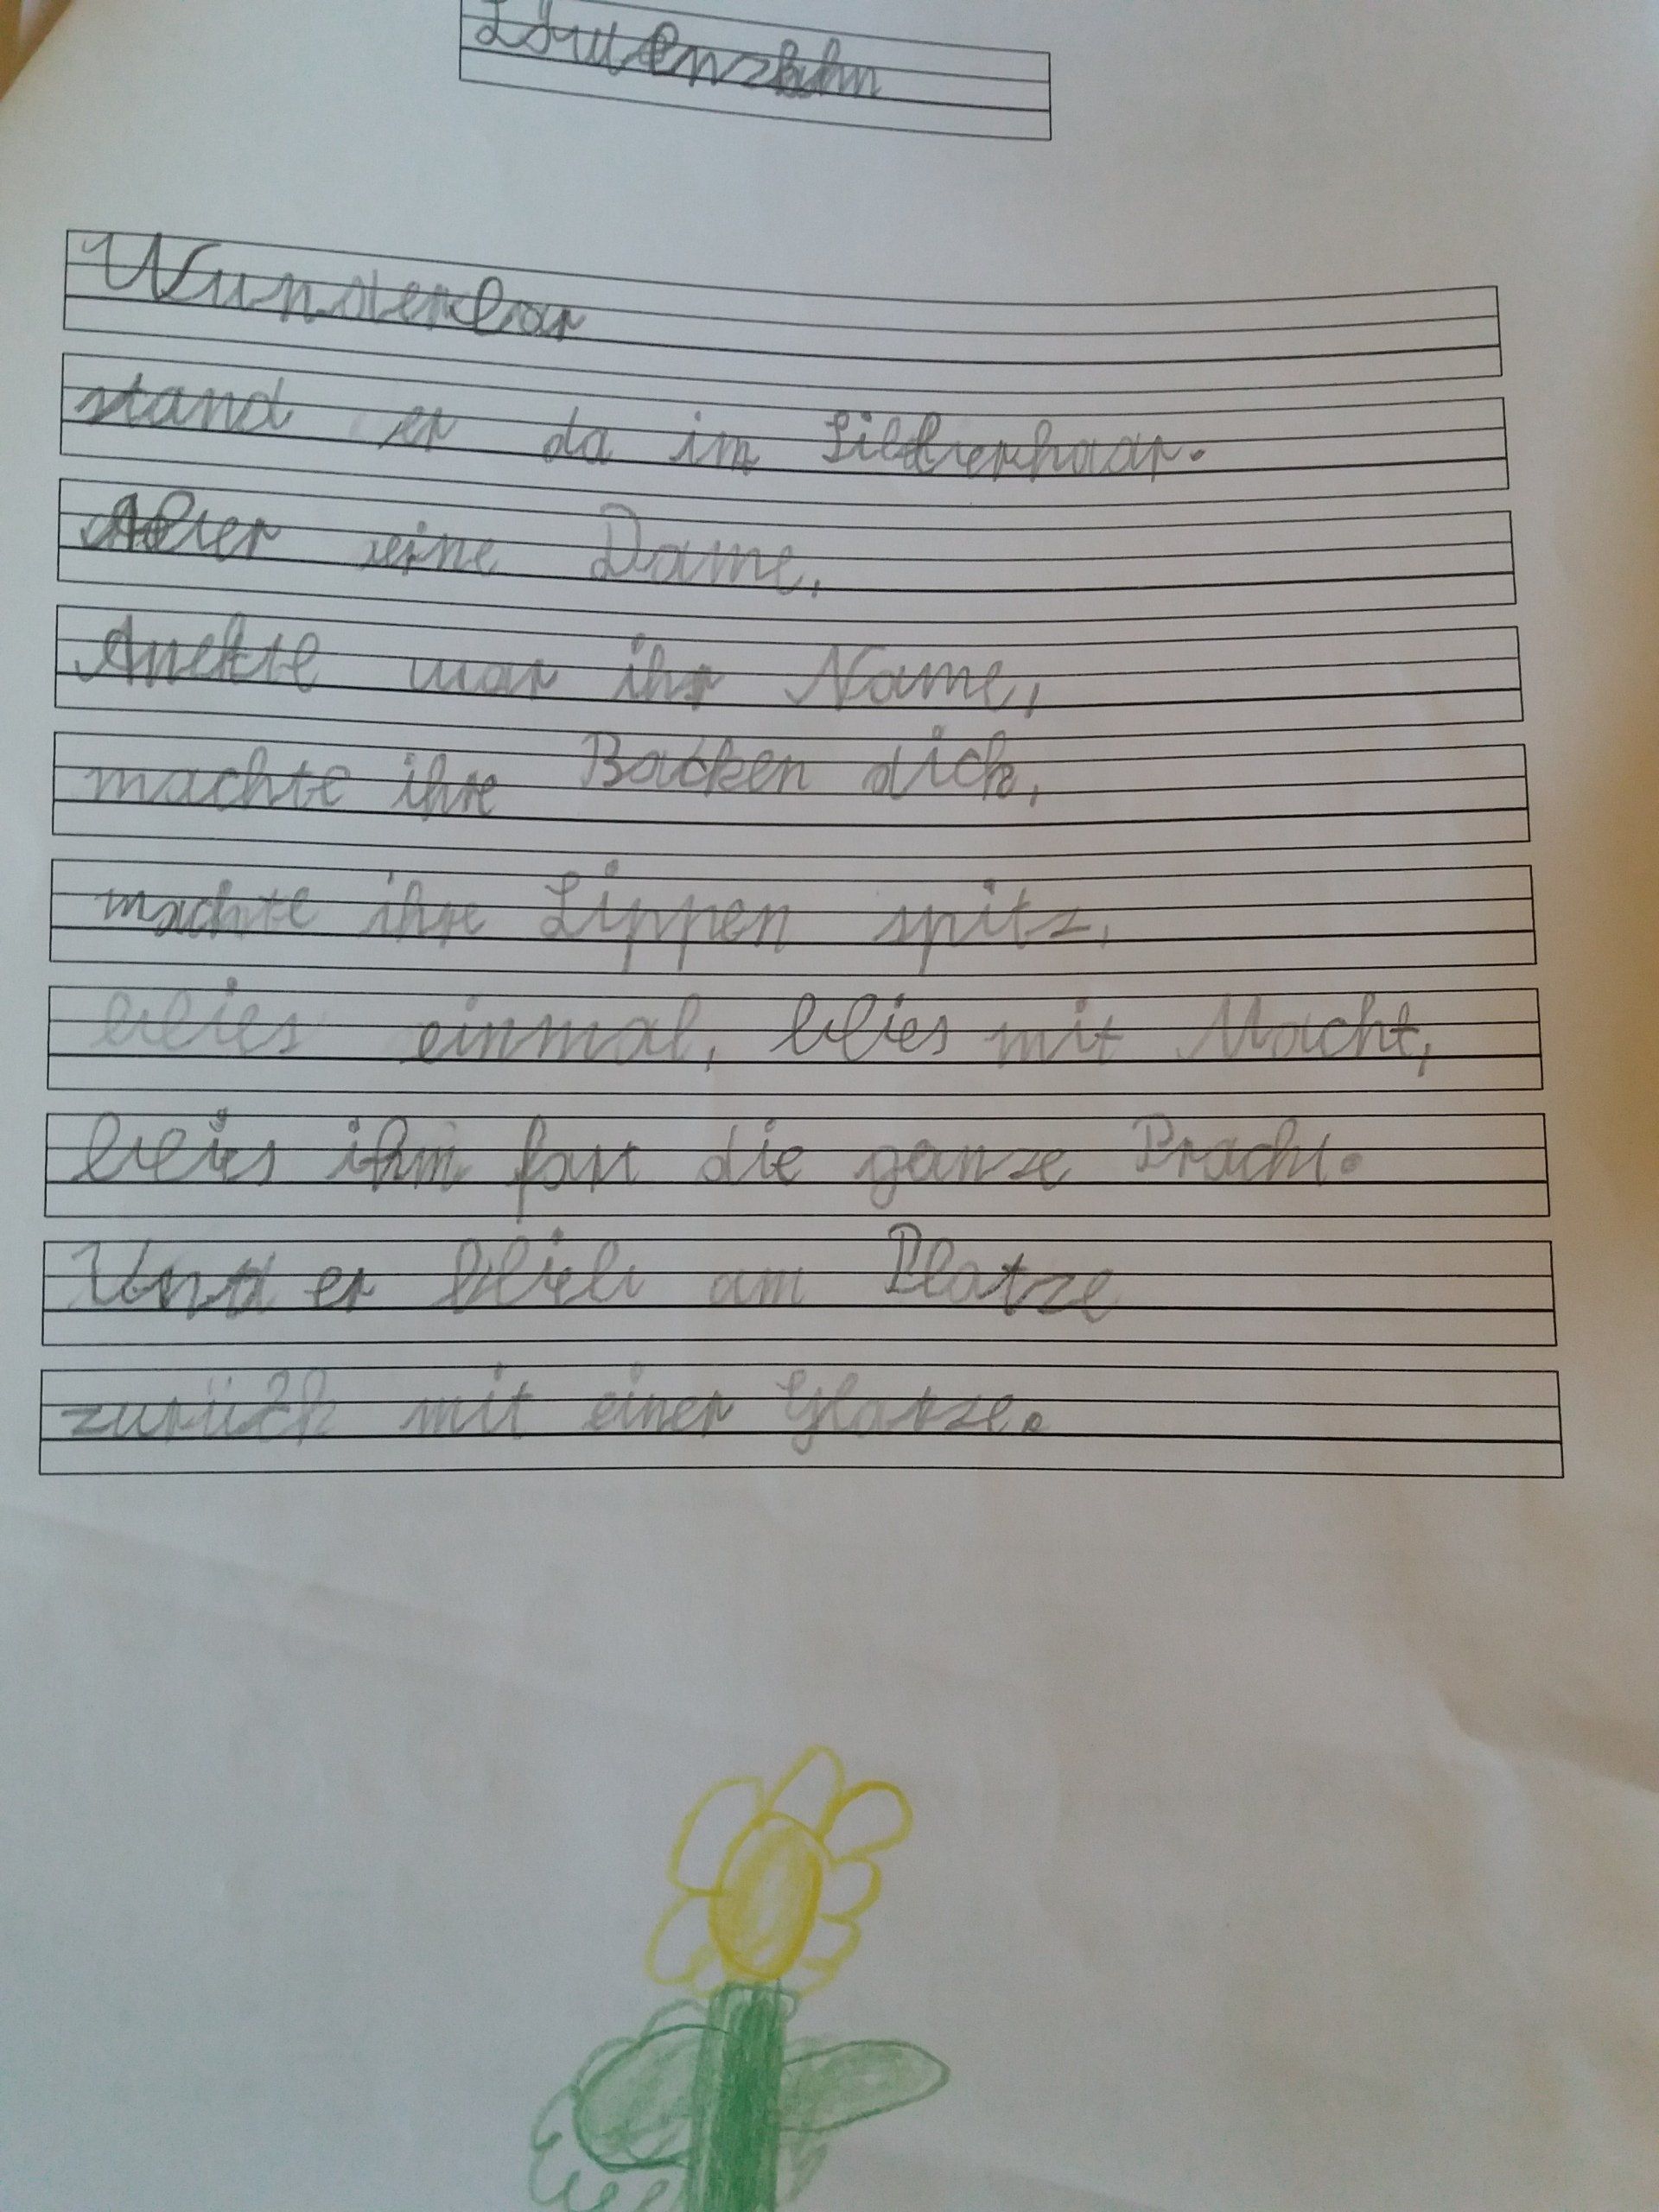 Löwenzahn
Wunderbar
stand er da im Silberhaar.
Aber eine Dame,
Anette war ihr Name,
machte ihre Backen dick,
machte ihre Lippen spitz,
blies einmal, blies mit Macht,
blies ihm fast die ganze Pracht.
Und er blieb am Platze
zurück mit einer Glatze.